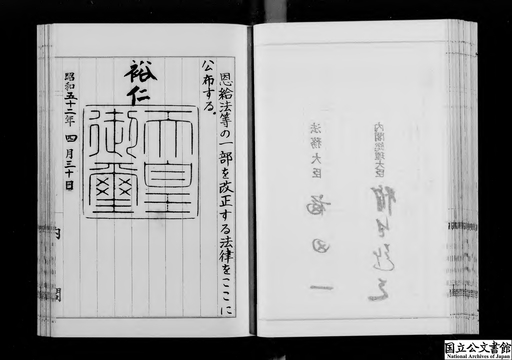 恩給法等の一部を改正する法律をここに
公布する。
裕仁
天皇
御璽
昭和五十二年四月三十日
内閣
内閣総理大臣
法務大臣
国立公文書館
National Archives of Japan